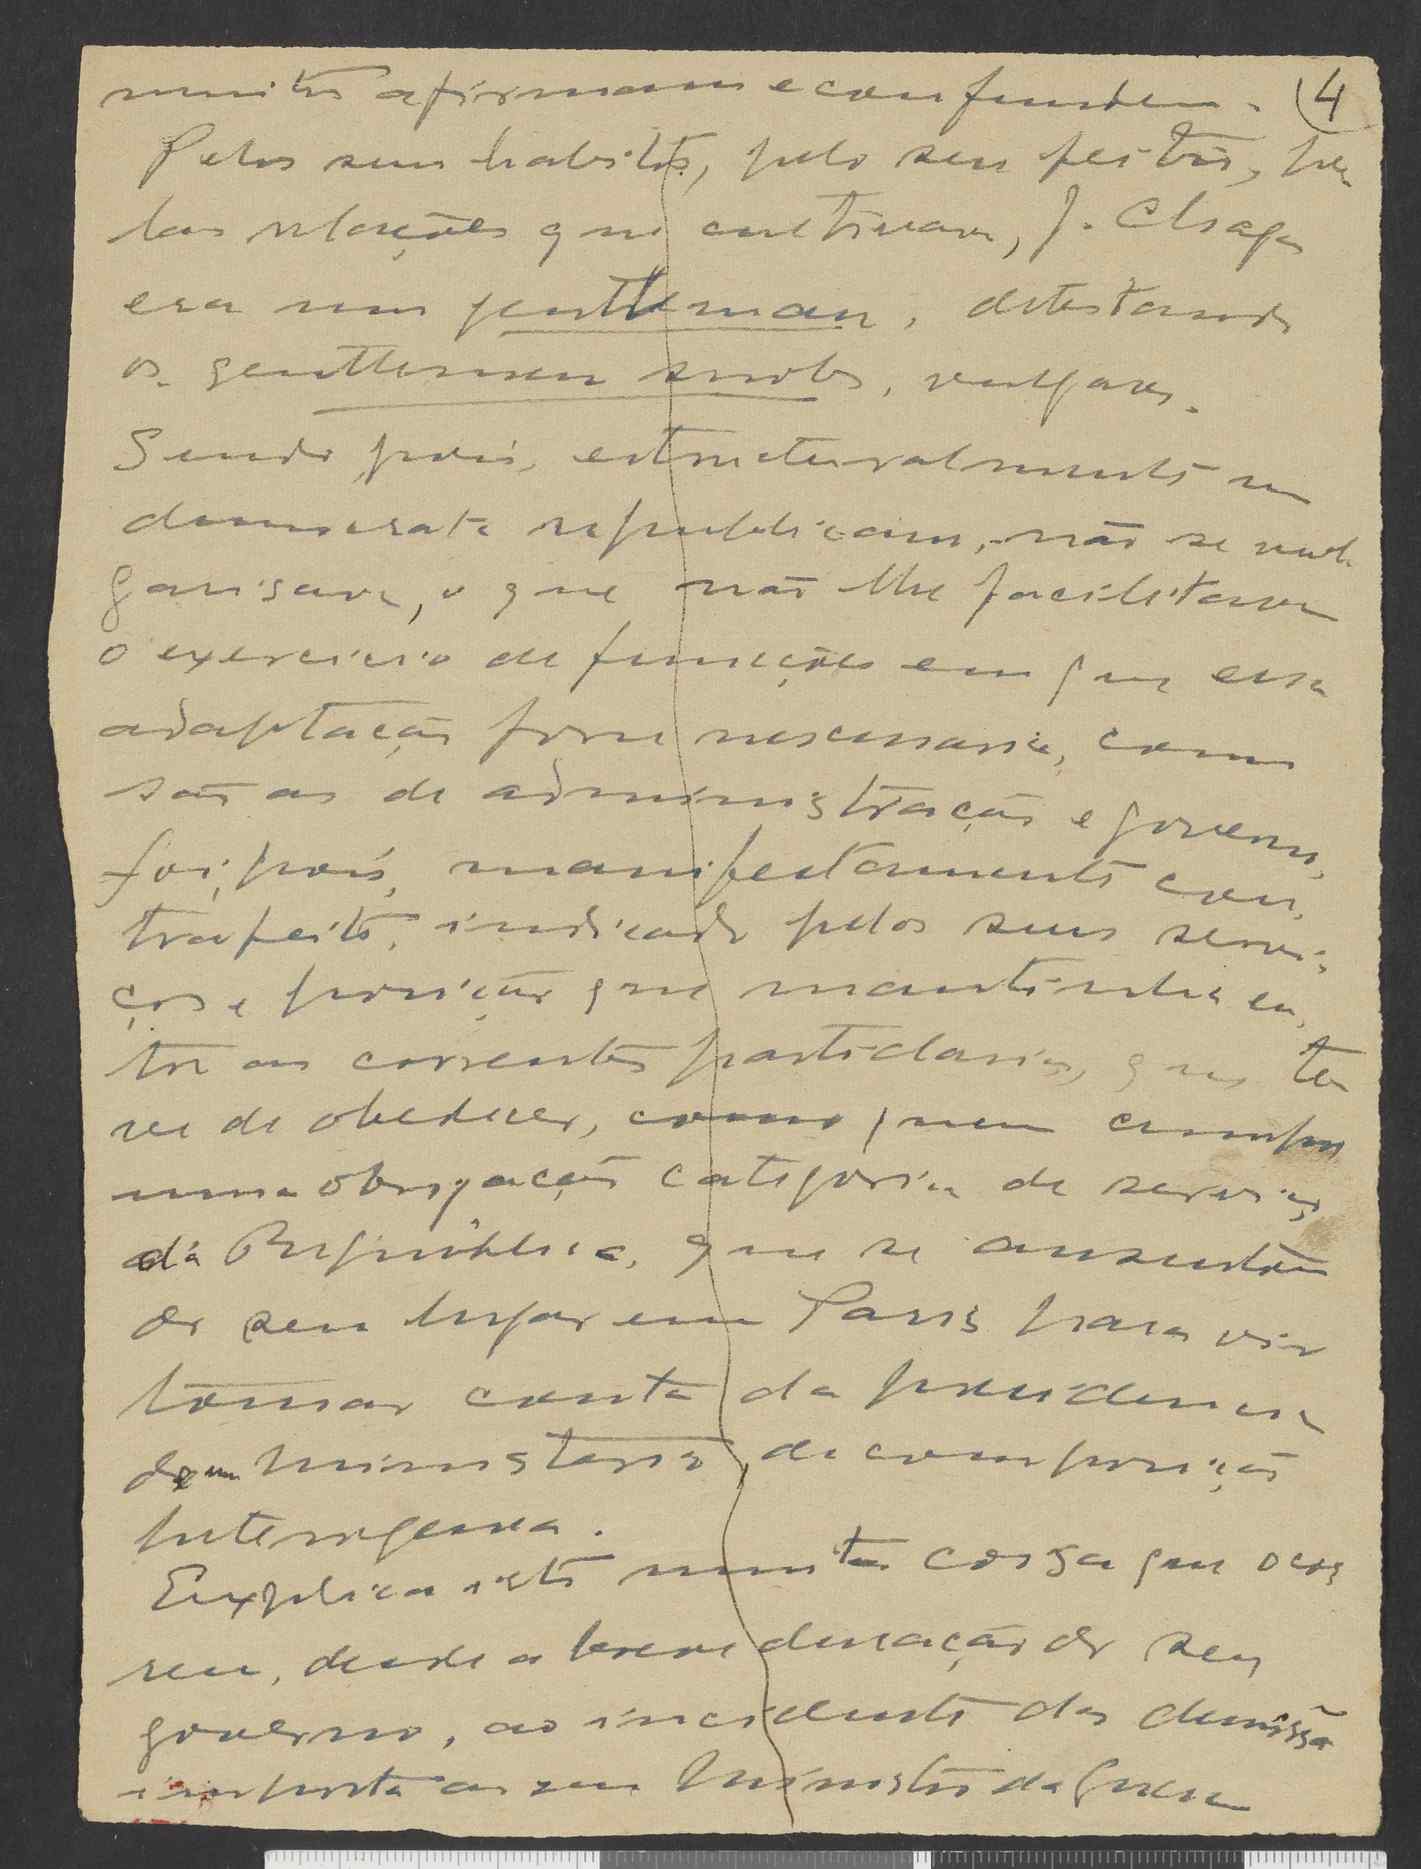 muitos afirmam e confundem. (4
Pelos seus habitos, pelo seu feitio, pe-
las relações que cultivava, J. Chagas
era um gentleman, detestando
os gentlemen snobs, vulgares.
Sendo, pois, estructuralmente um
democrata republicano, não se vul-
garisava, o que não lhe facilitava
o exercicio de funcções em que essa
adaptação fosse nescessaria, como
são as de administração e governo.
Foi, pois, manifestamente con-
trafeito, indicado pelos seus servi-
ços e posição que mantinha en-
tre as correntes partidarias, que te-
ve de obedecer, como quem cumpre
uma obrigação categorica de serviço
dá República, que se ausentou
do seu lugar em Paris para vir
tomar conta da presidencia
de um ministerio de composição
heterogenea.
Explica isto muita coisa que ocor-
reu, desde a breve duração do seu
governo, ao incidente da demissão
imposta ao seu Ministro da Guerra